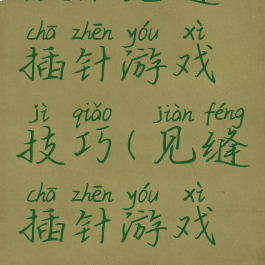 chā zhēn yóu xì
插针游戏
jì qiǎo jiàn féng
技巧(见缝
chā zhēn yóu xì
插针游戏